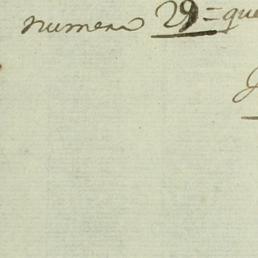 numero 29 = que